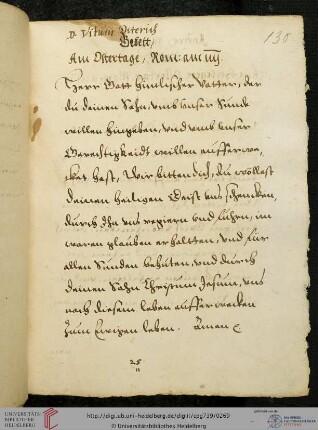 D. Vitum Dieterich 130
Gebett,
Am Ostertage, Rom: am iiij.
Herr Gott himlischer Vatter, der
du deinen Sohn, vmb vnser Sunde
willen hingeben, vnd vmb vnser
Gerechtigkeidt willen aufferwe,
cket hast, Wir bitten dich, du wöllest
deinen heiligen Geist vns schencken,
durch Ihn vns regieren vnd fuhren, im
waren glauben erhaltten, vnd fur
allen Sunden behuten, vnd durch
deinen Sohn Christum Jesum, vns
nach diesem leben aufferwecken
zum Ewigen leben. Amen
25
UNIVERSITÄTS-
BIBLIOTHEK
HEIDELBERG
http://digi.ub.uni-heidelberg.de/diglit/cpg739/0269
© Universitätsbibliothek Heidelberg